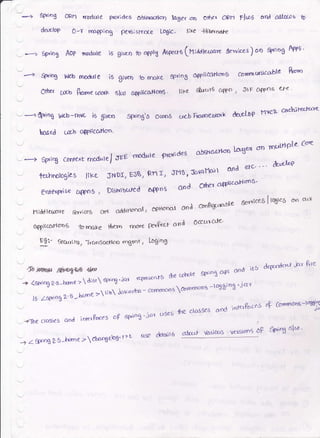 → Spring ORM module provides abstraction layer on other ORM F/ws and allows to
develop O-R mapping persistence Logic. like Hibernate
→ Spring AOP module is given to apply Aspects (Middleware services) on Spring Apps.
→ Spring Web module is given to make spring applications communicable from
other web frame work s/w applications. like struts appn, JSF appns etc
→ Spring web-mvc is given spring's owns web framework develop MVC2 architecture
based web application.
→ Spring Context module / JEE module provides abstraction layer on multiple core
technologies like JNDI, EJB, RMI, JMS, JavaMail and etc... develop
Enterprise appns, Distributed appns and other applications.
Middleware services are additional, optional and configurable services/logics on our
applications to make them more perfect and accurate.
Eg:- Security, Transaction mgmt, Loging
→ <Spring2.5_home>\dist\spring.jar represents the whole spring api and its dependent jar file
is <Spring2.5_home>\lib\Jakarta-commons\commons-logging.jar
→ The classes and interfaces of spring.jar uses the classes and interfaces of commons-logging
→ <Spring2.5_home>\changelog.txt use details about various versions of Spring s/w.